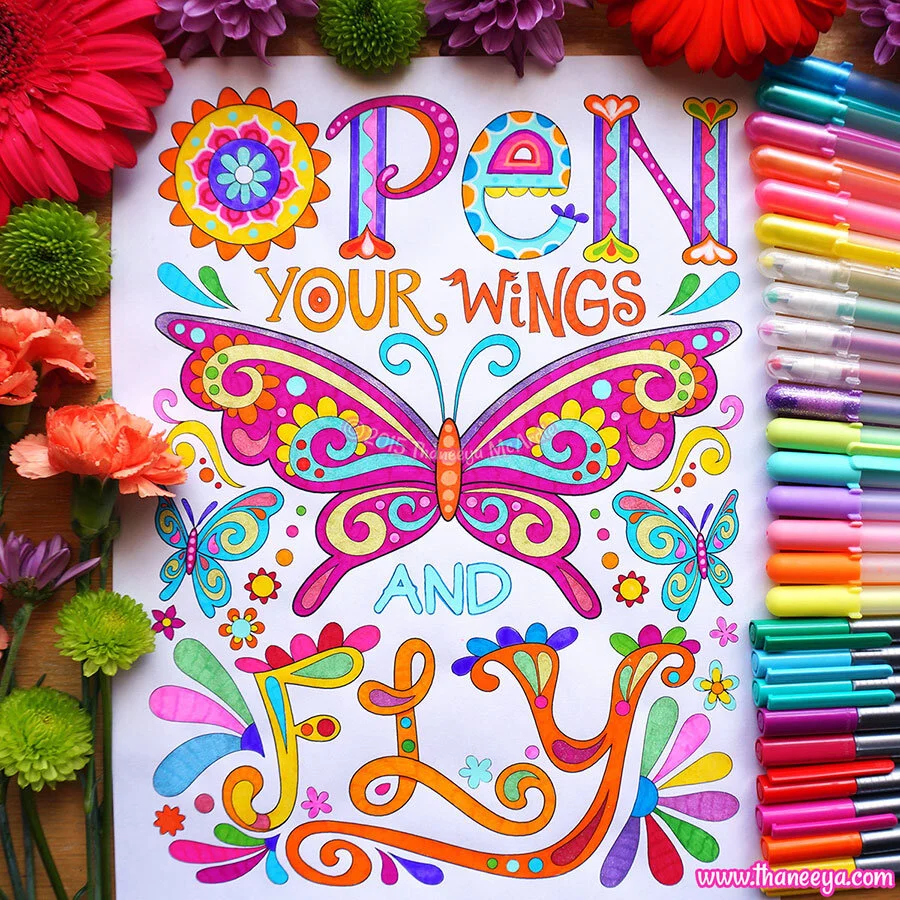 OPeN
YOUR WiNGS
©2015 Thaneeya McArdle
AND
FLy
www.thaneeya.com